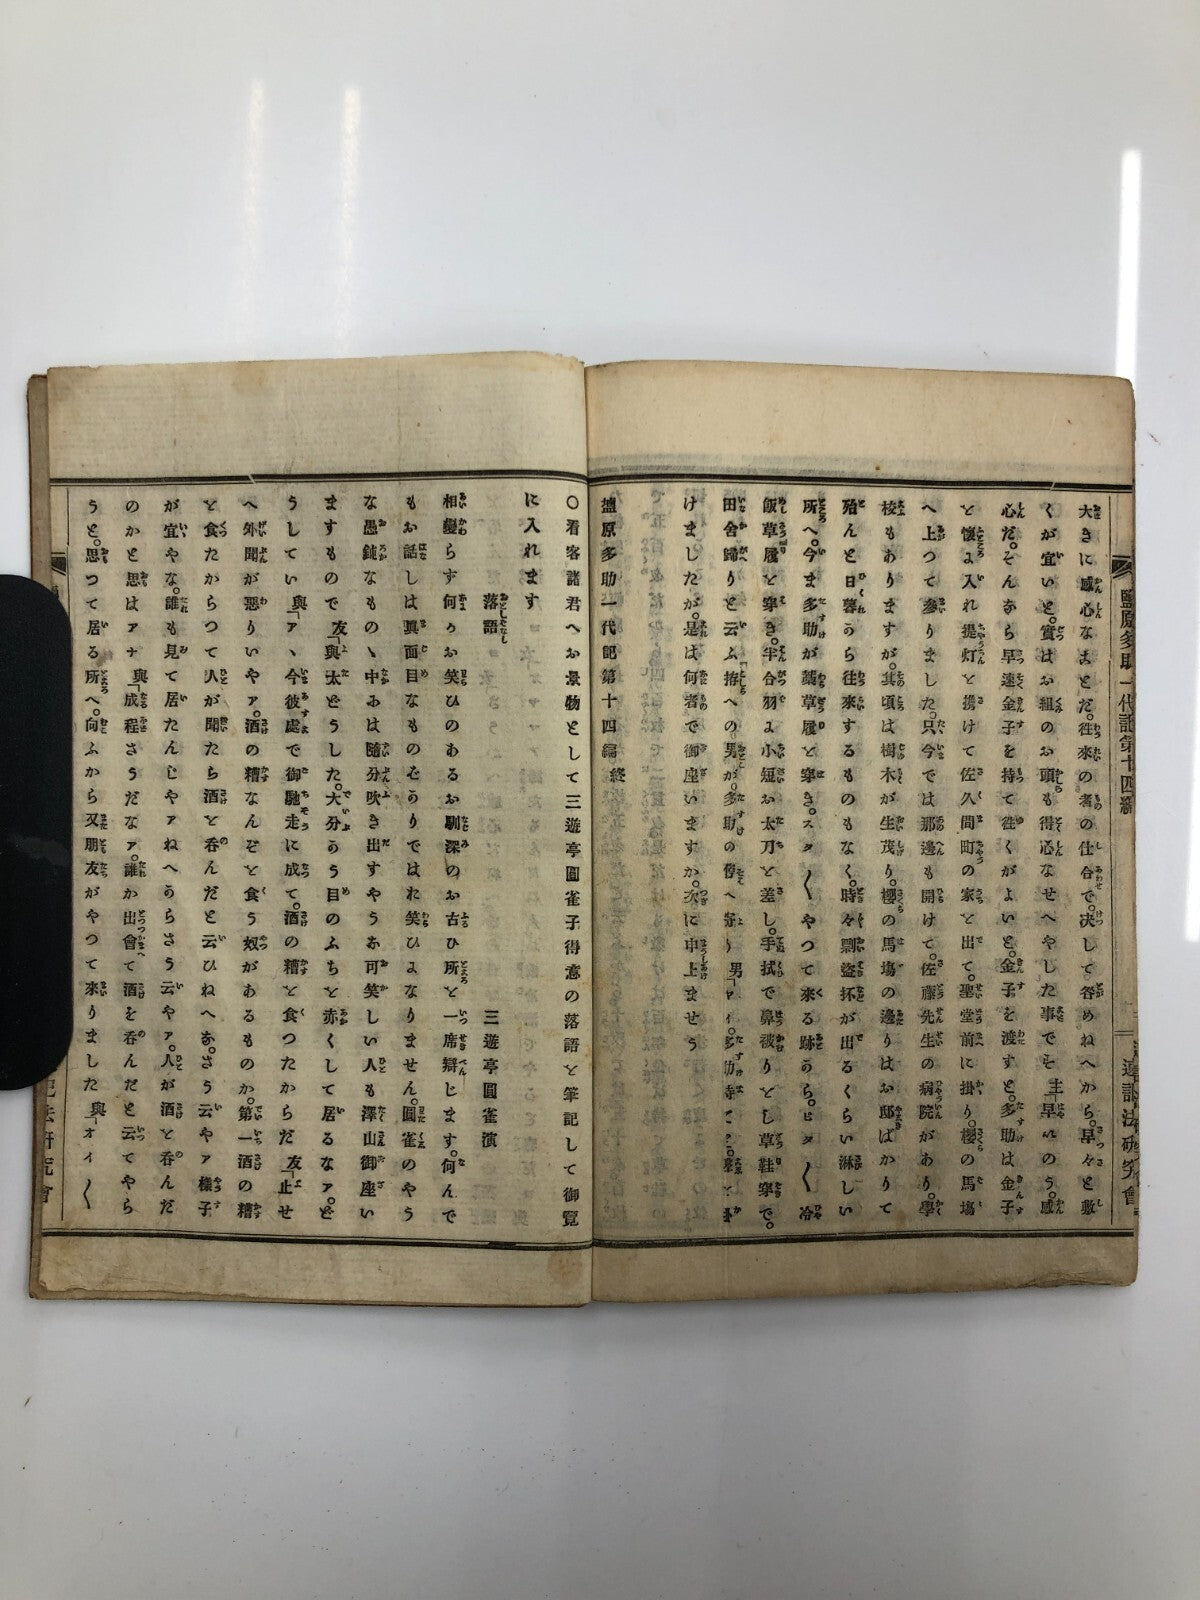 鹽原多助一代記第十四編
速記法研究會
大きに感心なほどだ。徃來の者の仕合で。决して咎めねへから。早々と敷
くが宜いと。實はお組のお頭も得心なせへやした事でそ 主「早
心だ。そんなら早速金子を持て徃くがよいと。金子を渡すと。多助は金子
と懷よ入れ提灯と携けて佐久間町の家と出て。聖堂前に掛り。櫻の馬塲
へ上つて參りました。只今では那邊も開けて。佐藤先生の病院があり。學
校もありますが。其頃は樹木が生茂り。櫻の馬塲の邊りはお邸ばかりて
殆んと日暮うら徃來するものもなく。時々剽盜抔が出るくらい淋しい
所へ。今ま多助が藁草履と穿き。スタ〱やつて來る跡うら。ヒタ〱冷
飯草履と穿き。半合羽よ小短お太刀と差し。手拭で鼻被りとし草鞋穿で。
田舍歸りと云ふ拵への男が。多助の傍へ寄り 男
けましたが。是は何者で御座いますか。次に申上ませう
塩原多助一代記第十四編終
〇看客諸君へお景物として三遊亭圓雀子得意の落語と筆記して御覽
に入れます
落語 三遊亭圓雀演
相變らす何かお笑ひのあるお馴深のお古ひ所と一席辯じます。何んで
もお話しは眞面目なものそうりではれ笑ひよなりません。圓雀のやう
な愚鈍なものゝ中みは隨分吹き出すやうお可笑しい人も澤山御座い
ますもので 友「與太どうした。大分うう目のふちと赤くして居るなァ。ど
うしてい 與「アヽ今彼處で御馳走に成て。酒の糟と食つたからだ 友「止せ
へ外聞が惡りいやァ。酒の糟なんぞと食う奴があるものか。第一酒の糟
と食たからつて人が聞たら酒と呑んだと云ひねへお。さう云やァ樣子
が宜やな。誰も見て居たんじやァねへうらさう云やァ。人が酒と呑んだ
のかと思はァナ 與「成程さうだなァ。誰か出會て酒を呑んだと云てやら
うと。思つて居る所へ。向ふから又朋友がやつて來りました 與「オイ〱